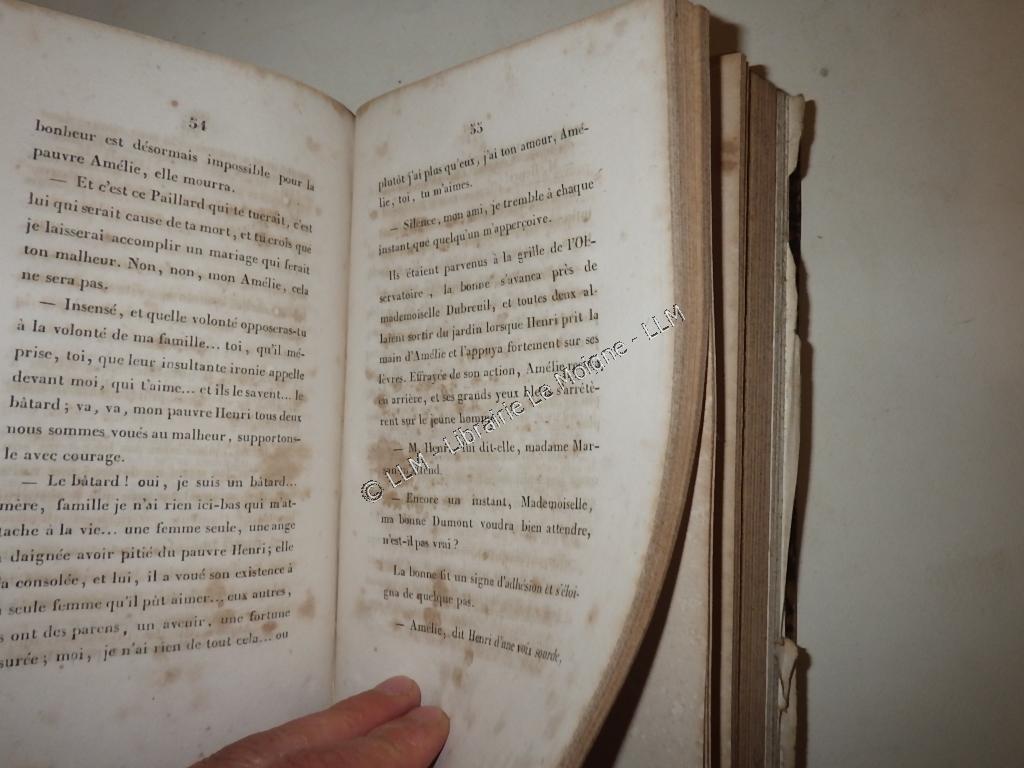 54
bonheur est désormais impossible pour la
pauvre Amélie, elle mourra.
— Et c'est ce Paillard qui te tuerait, c'est
lui qui serait cause de ta mort, et tu crois que
je laisserai accomplir un mariage qui ferait
ton malheur. Non, non, mon Amélie, cela
ne sera pas.
— Insensé, et quelle volonté opposeras-tu
à la volonté de ma famille... toi, qu'il mé-
prise, toi, que leur insultante ironie appelle
devant moi, qui t'aime... et ils le savent... le
bâtard; va, va, mon pauvre Henri tous deux
nous sommes voués au malheur, supportons-
le avec courage.
— Le bâtard! oui, je suis un bâtard...
mère, famille je n'ai rien ici-bas qui m'at-
tache à la vie... une femme seule, une ange
daignée avoir pitié du pauvre Henri; elle
consolée, et lui, il a voué son existence à
seule femme qu'il pût aimer... eux autres,
ont des parens, un avenir, une fortune
surée; moi, je n'ai rien de tout cela... ou
55
plutôt j'ai plus qu'eux, j'ai ton amour, Amé-
lie, toi, tu m'aimes.
— Silence, mon ami, je tremble à chaque
instant que quelqu'un m'apperçoive.
Ils étaient parvenus à la grille de l'Ob-
servatoire, la bonne s'avança près de
mademoiselle Dubreuil, et toutes deux al-
laient sortir du jardin lorsque Henri prit la
main d'Amélie et l'appuya fortement sur ses
lèvres. Effrayée de son action, Amélie
en arrière, et ses grands yeux bleus s'arrêtè-
rent sur le jeune homme
— M. Henri, lui dit-elle, madame Mar-
— Encore un instant, Mademoiselle,
ma bonne Dumont voudra bien attendre,
n'est-il pas vrai?
La bonne fit un signe d'adhésion et s'éloi-
gna de quelque pas.
— Amélie, dit Henri d'une voix sourde,
© LLM - Librairie Le Moigne - LLM